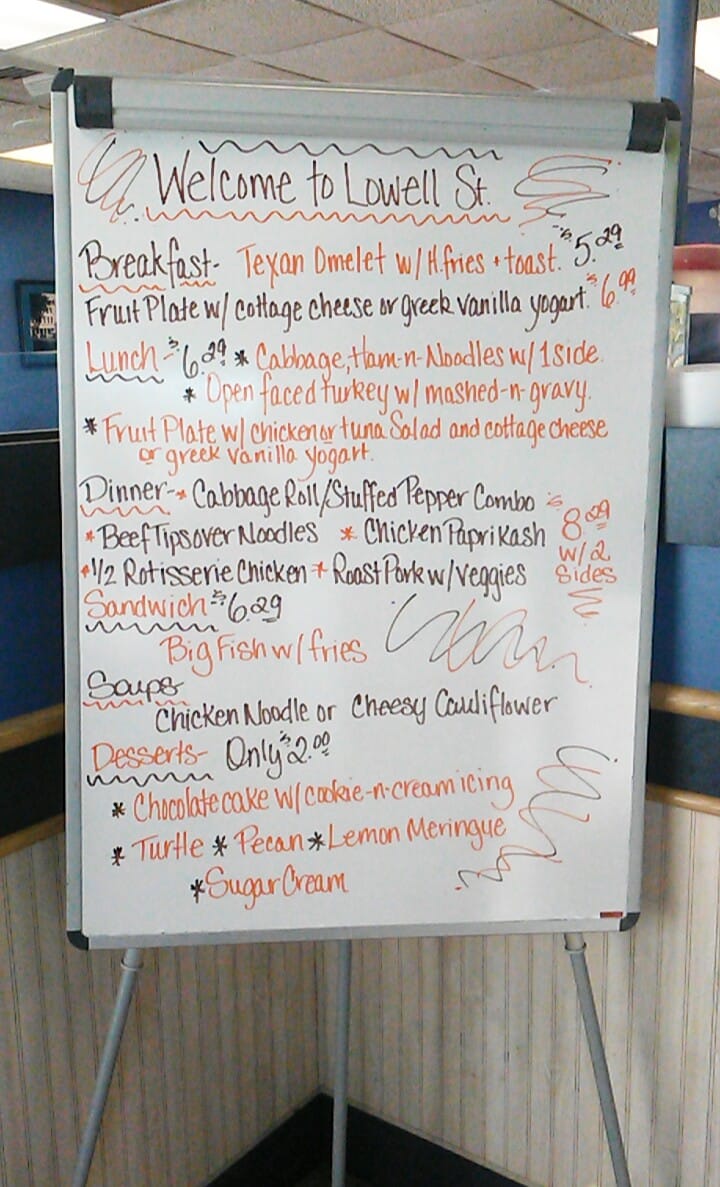 Welcome to Lowell St.
Breakfast- Texan Omelet w/ H.fries + toast. $5.29
Fruit Plate w/ cottage cheese or greek vanilla yogart. $6.99
Lunch - $6.29 * Cabbage, Ham-n-Noodles w/ 1 side.
* Open faced turkey w/ mashed-n-gravy.
* Fruit Plate w/ chicken or tuna Salad and cottage cheese
or greek vanilla yogart.
Dinner-* Cabbage Roll/Stuffed Pepper Combo $8.29
* Beef Tips over Noodles * Chicken Paprikash w/ 2
* 1/2 Rotisserie Chicken * Roast Pork w/ veggies sides
Sandwich $6.29
Big Fish w/ fries
Soups
Chicken Noodle or Cheesy Cauliflower
Desserts- Only $2.00
* Chocolate cake w/ cookie-n-cream icing
* Turtle * Pecan * Lemon Meringue
* Sugar Cream